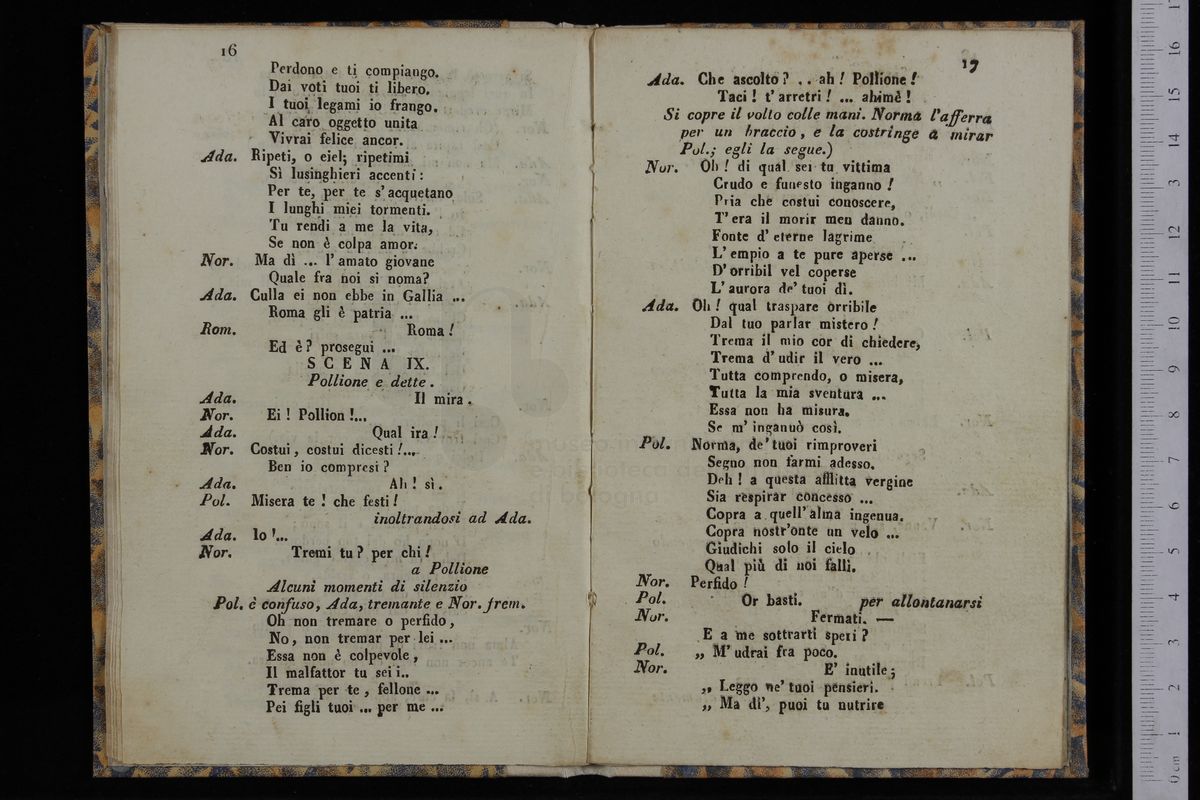 16
Perdono e ti compiango.
Dai voti tuoi ti libero.
I tuoi legami io frango.
Al caro oggetto unita
Vivrai felice ancor.
Ada. Ripeti, o ciel; ripetimi
Sì lusinghieri accenti:
Per te, per te s'acquetano
I lunghi miei tormenti.
Tu rendi a me la vita,
Se non è colpa amor.
Nor. Ma dì ... l'amato giovane
Quale fra noi si noma?
Ada. Culla ei non ebbe in Gallia ...
Roma gli è patria ...
Rom. Roma!
Ed è? prosegui ...
SCENA IX.
Pollione e dette.
Ada. Il mira.
Nor. Ei! Pollion!...
Ada. Qual ira!
Nor. Costui, costui dicesti!...
Ben io compresi?
Ada. Ah! sì.
Pol. Misera te! che festi!
inoltrandosi ad Ada.
Ada. Io!...
Nor. Tremi tu? per chi!
a Pollione
Alcuni momenti di silenzio
Pol. è confuso, Ada, tremante e Nor. frem.
Oh non tremare o perfido,
No, non tremar per lei ...
Essa non è colpevole,
Il malfattor tu sei i..
Trema per te, fellone ...
Pei figli tuoi ... per me ...
17
Ada. Che ascolto? .. ah! Pollione!
Taci! t'arretri! ... ahimè!
Si copre il volto colle mani. Norma l'afferra
per un braccio, e la costringe a mirar
Pol.; egli la segue.)
Nor. Oh! di qual sei tu vittima
Crudo e funesto inganno!
Pria che costui conoscere,
T'era il morir men danno.
Fonte d'eterne lagrime
L'empio a te pure aperse ...
D'orribil vel coperse
L'aurora de' tuoi dì.
Ada. Oh! qual traspare orribile
Dal tuo parlar mistero!
Trema il mio cor di chiedere,
Trema d'udir il vero ...
Tutta comprendo, o misera,
Tutta la mia sventura ...
Essa non ha misura.
Se m'ingannò così.
Pol. Norma, de' tuoi rimproveri
Segno non farmi adesso.
Deh! a questa afflitta vergine
Sia respirar concesso ...
Copra a quell'alma ingenua.
Copra nostr'onte un velo ...
Giudichi solo il cielo
Qual più di noi fallì.
Nor. Perfido!
Pol. Or basti. per allontanarsi
Nor. Fermati. —
E a me sottrarti speri?
Pol. „ M'udrai fra poco.
Nor. E' inutile;
„ Leggo ne' tuoi pensieri.
„ Ma dì', puoi tu nutrire